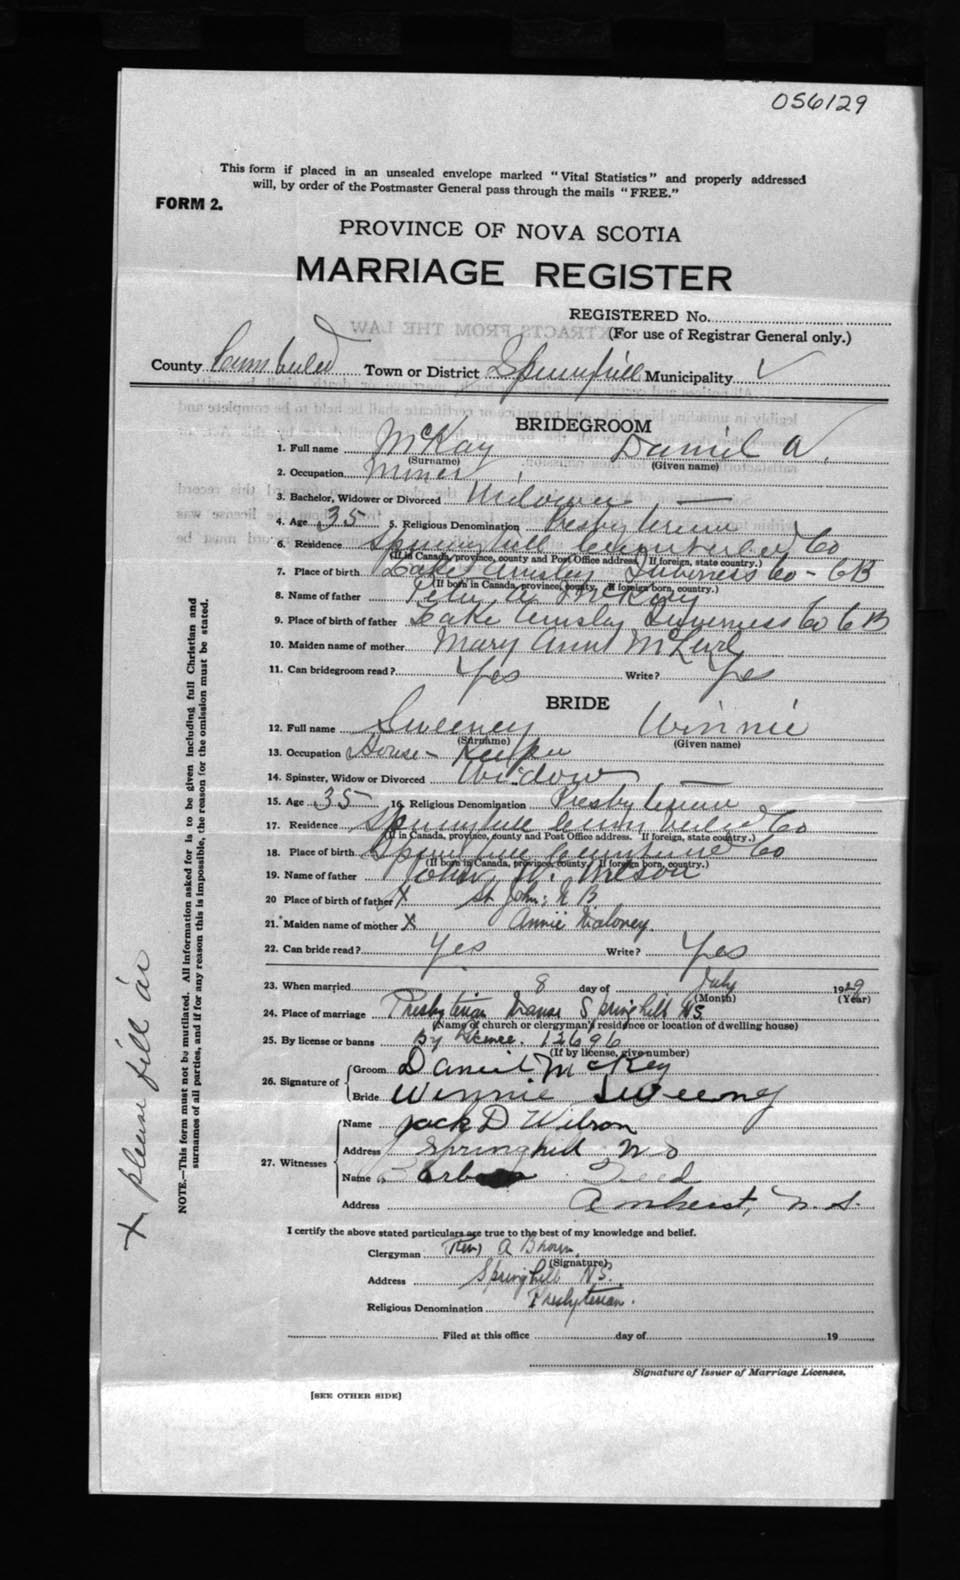 056129
This form if placed in an unsealed envelope marked "Vital Statistics" and properly addressed
will, by order of the Postmaster General pass through the mails "FREE."
FORM 2.
PROVINCE OF NOVA SCOTIA
MARRIAGE REGISTER
REGISTERED No.
(For use of Registrar General only.)
County Town or District Springhill Municipality
BRIDEGROOM
1. Full name McKay Daniel A.
(Surname) (Given name)
2. Occupation Miner
3. Bachelor, Widower or Divorced Widower
4. Age 35 5. Religious Denomination Presbyterian
6. Residence Springhill Cumberland Co
(If in Canada, province, county and Post Office address. If foreign, state country.)
7. Place of birth Lake Ainslay Inverness Co - CB
(If born in Canada, province, county. If foreign born, country.)
8. Name of father Peter A. McKay
9. Place of birth of father Lake Ainslay Inverness Co CB
10. Maiden name of mother Mary Ann
11. Can bridegroom read? Yes Write? Yes
BRIDE
12. Full name Sweeney Winnie
(Surname) (Given name)
13. Occupation House-Keeper
14. Spinster, Widow or Divorced Widow
15. Age 35 16. Religious Denomination Presbyterian
17. Residence Springhill Cumberland Co
(If in Canada, province, county and Post Office address. If foreign, state country.)
18. Place of birth Springhill Cumberland Co
(If born in Canada, province, county. If foreign born, country.)
19. Name of father John W. Wilson
20 Place of birth of father X St John, N B
21. Maiden name of mother X Annie Maloney.
22. Can bride read? Yes Write? Yes
23. When married 8 day of July 1929
(Month) (Year)
24. Place of marriage Presbyterian Manse Springhill NS
(Name of church or clergyman's residence or location of dwelling house)
25. By license or banns By License. 12696
(If by license, give number)
26. Signature of Groom Daniel McKay
Bride Winnie Sweeney
27. Witnesses Name Jack D Wilson
Address Springhill N S
Name
Address Amherst, N. S.
I certify the above stated particulars are true to the best of my knowledge and belief.
Clergyman Rev) A
(Signature)
Address Springhill NS.
Religious Denomination Presbyterian.
Filed at this office day of 19
Signature of Issuer of Marriage Licenses.
[SEE OTHER SIDE]
NOTE.—This form must not be mutilated. All information asked for is to be given including full Christian and
surnames of all parties, and if for any reason this is impossible, the reason for the omission must be stated.
X please fill in